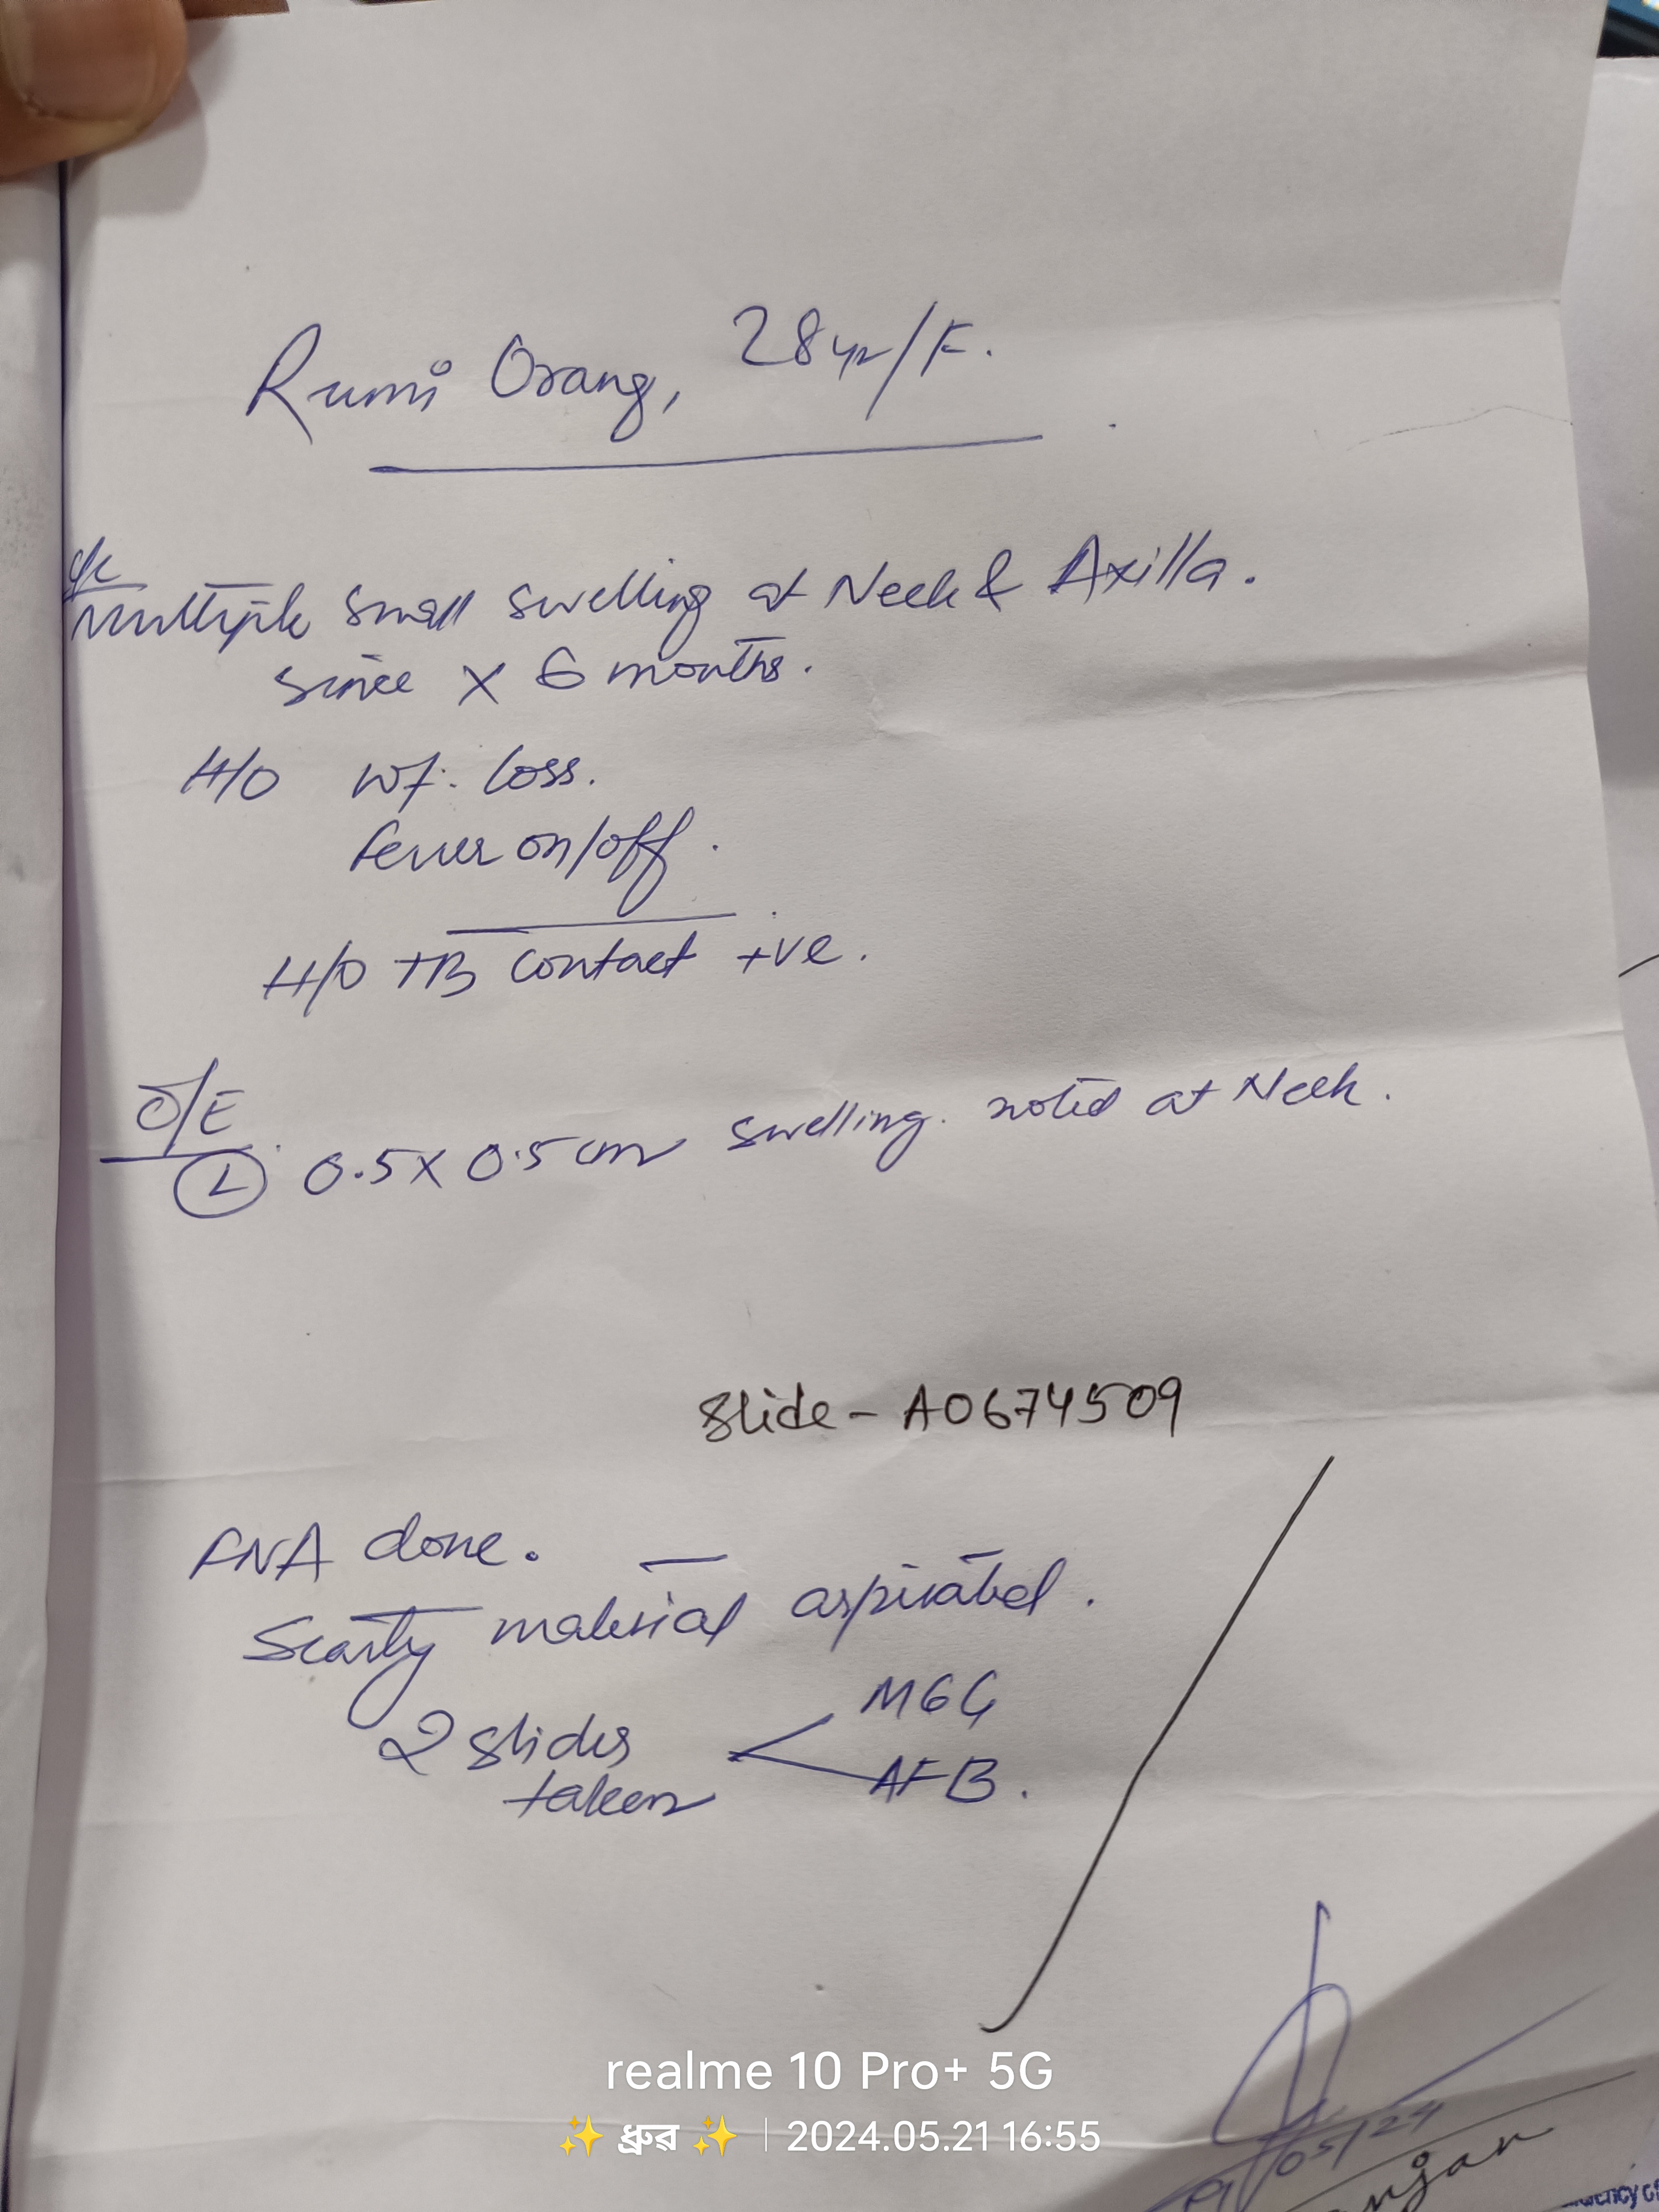 Rumi Orang, 28yr/F.
c/c
Multiple small swelling at Neck & Axilla.
since x 6 months.
H/O wt. loss.
fever on/off.
H/O TB contact +ve.
O/E
L 0.5 x 0.5 cm swelling. noted at Neck.
Slide - A0674509
FNA done.
Scanty material aspirated.
2 slides taken
MGG
AFB.
05/24
realme 10 Pro+ 5G
✨ ধ্ৰুৱ ✨ | 2024.05.21 16:55